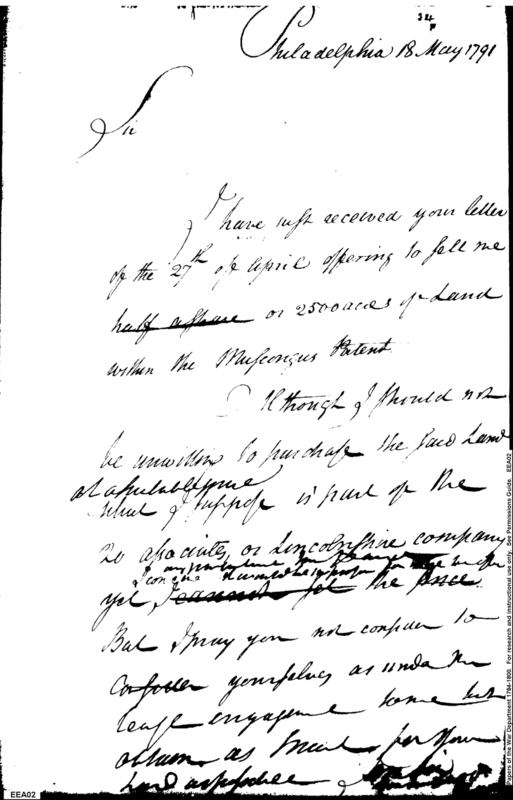 34
Philadelphia 18 May 1791
Sir
I have just received your letter
of the 27th of April offering to sell me
half a share or 2500 acres of Land
within the Muscongus Patent
Although I should not
be unwilling to purchase the said Land
at a suitable price
which I suppose is part of the
20 associates, or Lincolnshire company
yet, I cannot the price
But I pray you not consider to
Consider yourselves as under the
least engagement some but
obtain as much for your
Land as possible
EEA02
Papers of the War Department 1784-1800. For research and instructional use only. See Permissions Guide. EEA02